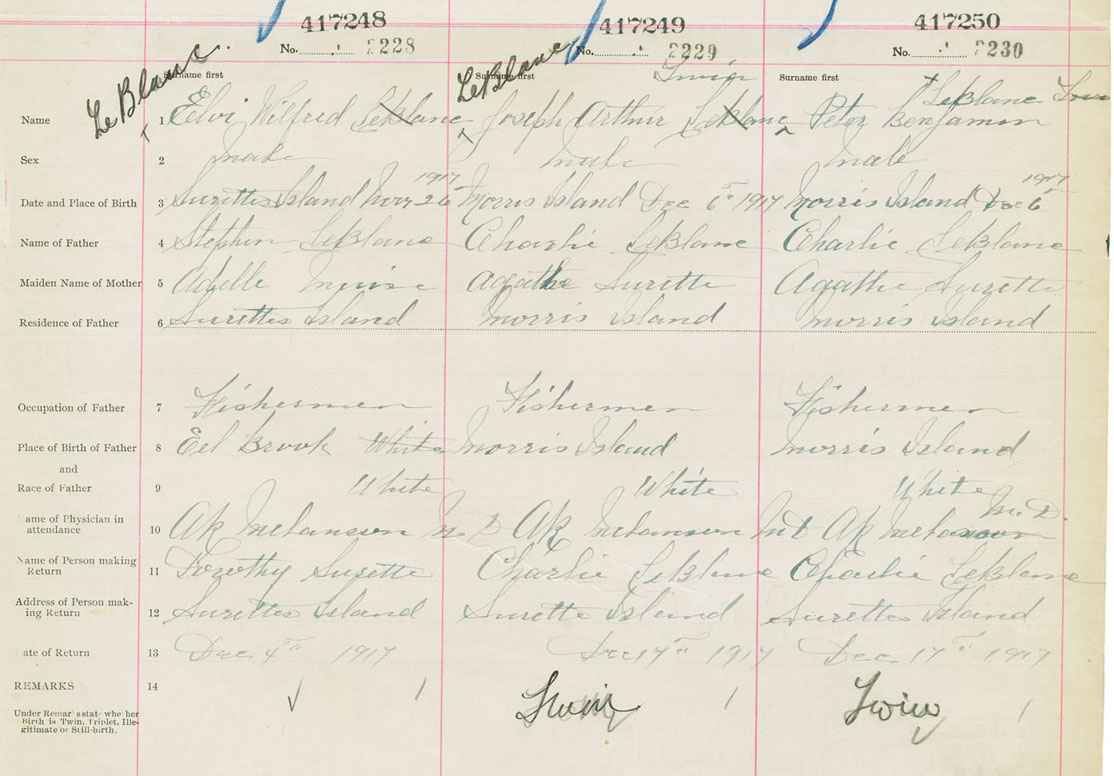 417248 417249 417250
No. 2228 No. 2229 No. 2230
LeBlanc. Surname first LeBlanc Surname first Twin Surname first LeBlanc
Name 1 Elvi Wilfred LeBlanc Joseph Arthur LeBlanc Peter Benjamin
Sex 2 male male male
Date and Place of Birth 3 Surettes Island Nov 26 1917 Morris Island Dec 6th 1917 Morris Island Dec 6 1917
Name of Father 4 Stephen LeBlanc Charlie LeBlanc Charlie LeBlanc
Maiden Name of Mother 5 Adelle Agathe Surette Agathe Surette
Residence of Father 6 Surettes Island Morris Island Morris Island
Occupation of Father 7 Fishermen Fishermen Fishermen
Place of Birth of Father 8 Eel Brook White Morris Island Morris Island
and
Race of Father 9 White White White
Name of Physician in
attendance 10 AR Melanson M D AR Melanson MD AR Melanson M.D.
Name of Person making
Return 11 Dorothy Surette Charlie LeBlanc Charlie LeBlanc
Address of Person mak-
ing Return 12 Surettes Island Surette Island Surette Island
ate of Return 13 Dec 4th 1917 Dec 17th 1917 Dec. 17th 1917
REMARKS 14 Twin Twin
Under Remarks state whether
Birth is Twin, Triplet, Ille-
gitimate or Still-birth.